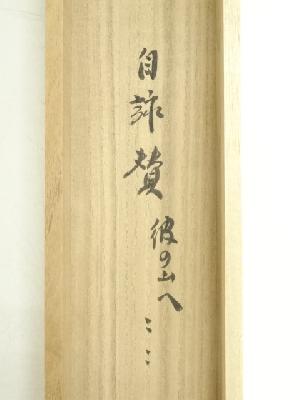 自詠賛 彼の山へ ːː